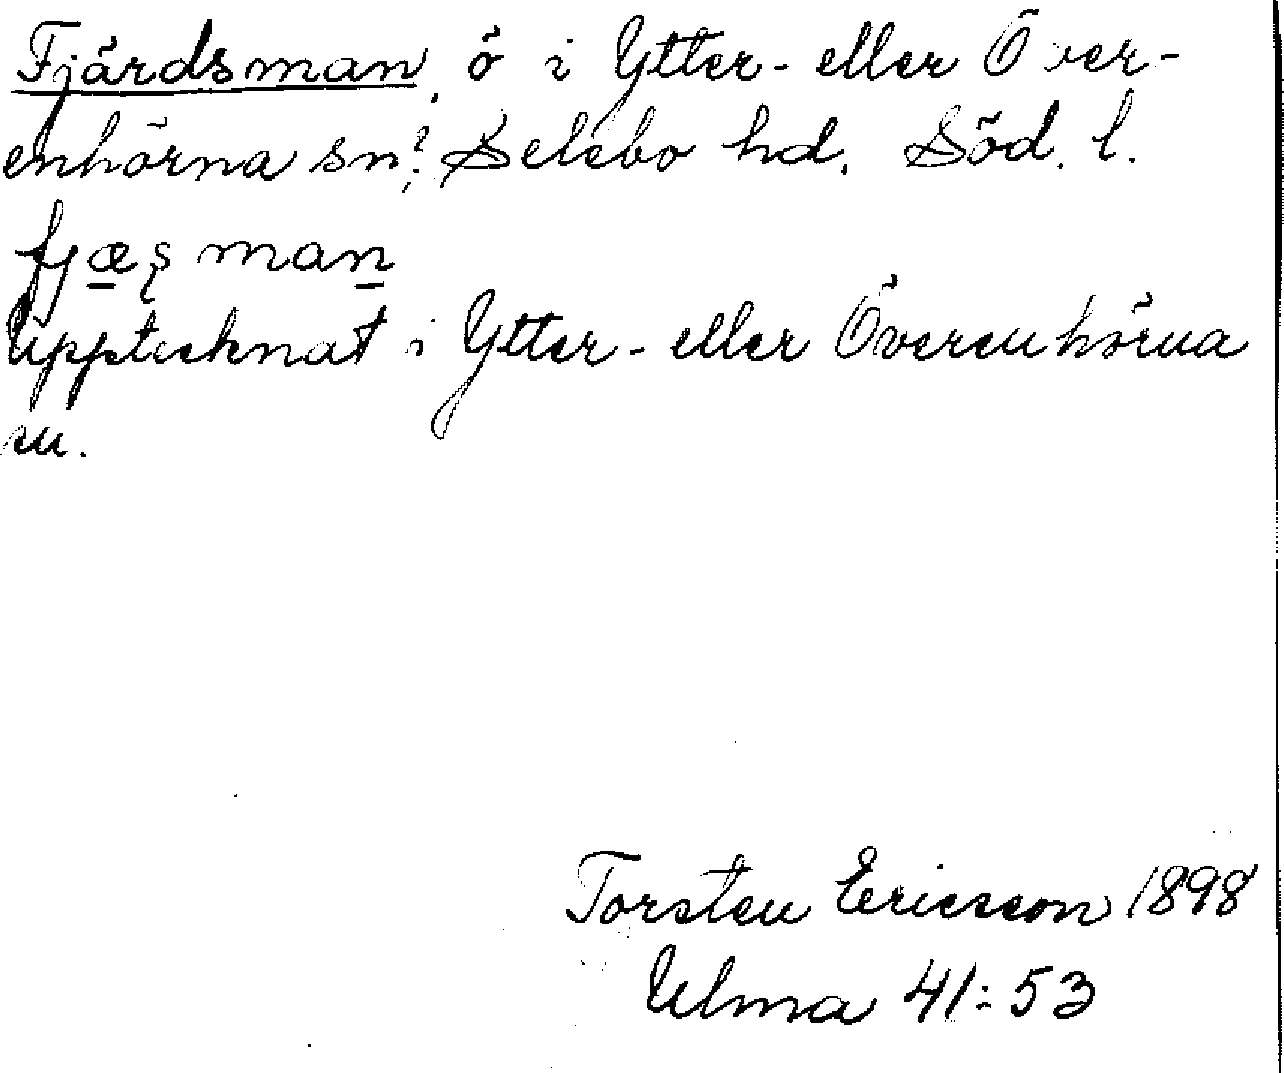 Fjärdsman, ö i Ytter- eller Över-
enhörna sn? Selebo hd. Söd. l.
fjæ̲ʂ man̲
Upptecknat i Ytter- eller Överenhörna
sn.
Torsten Ericsson 1898
Ulma 41:53